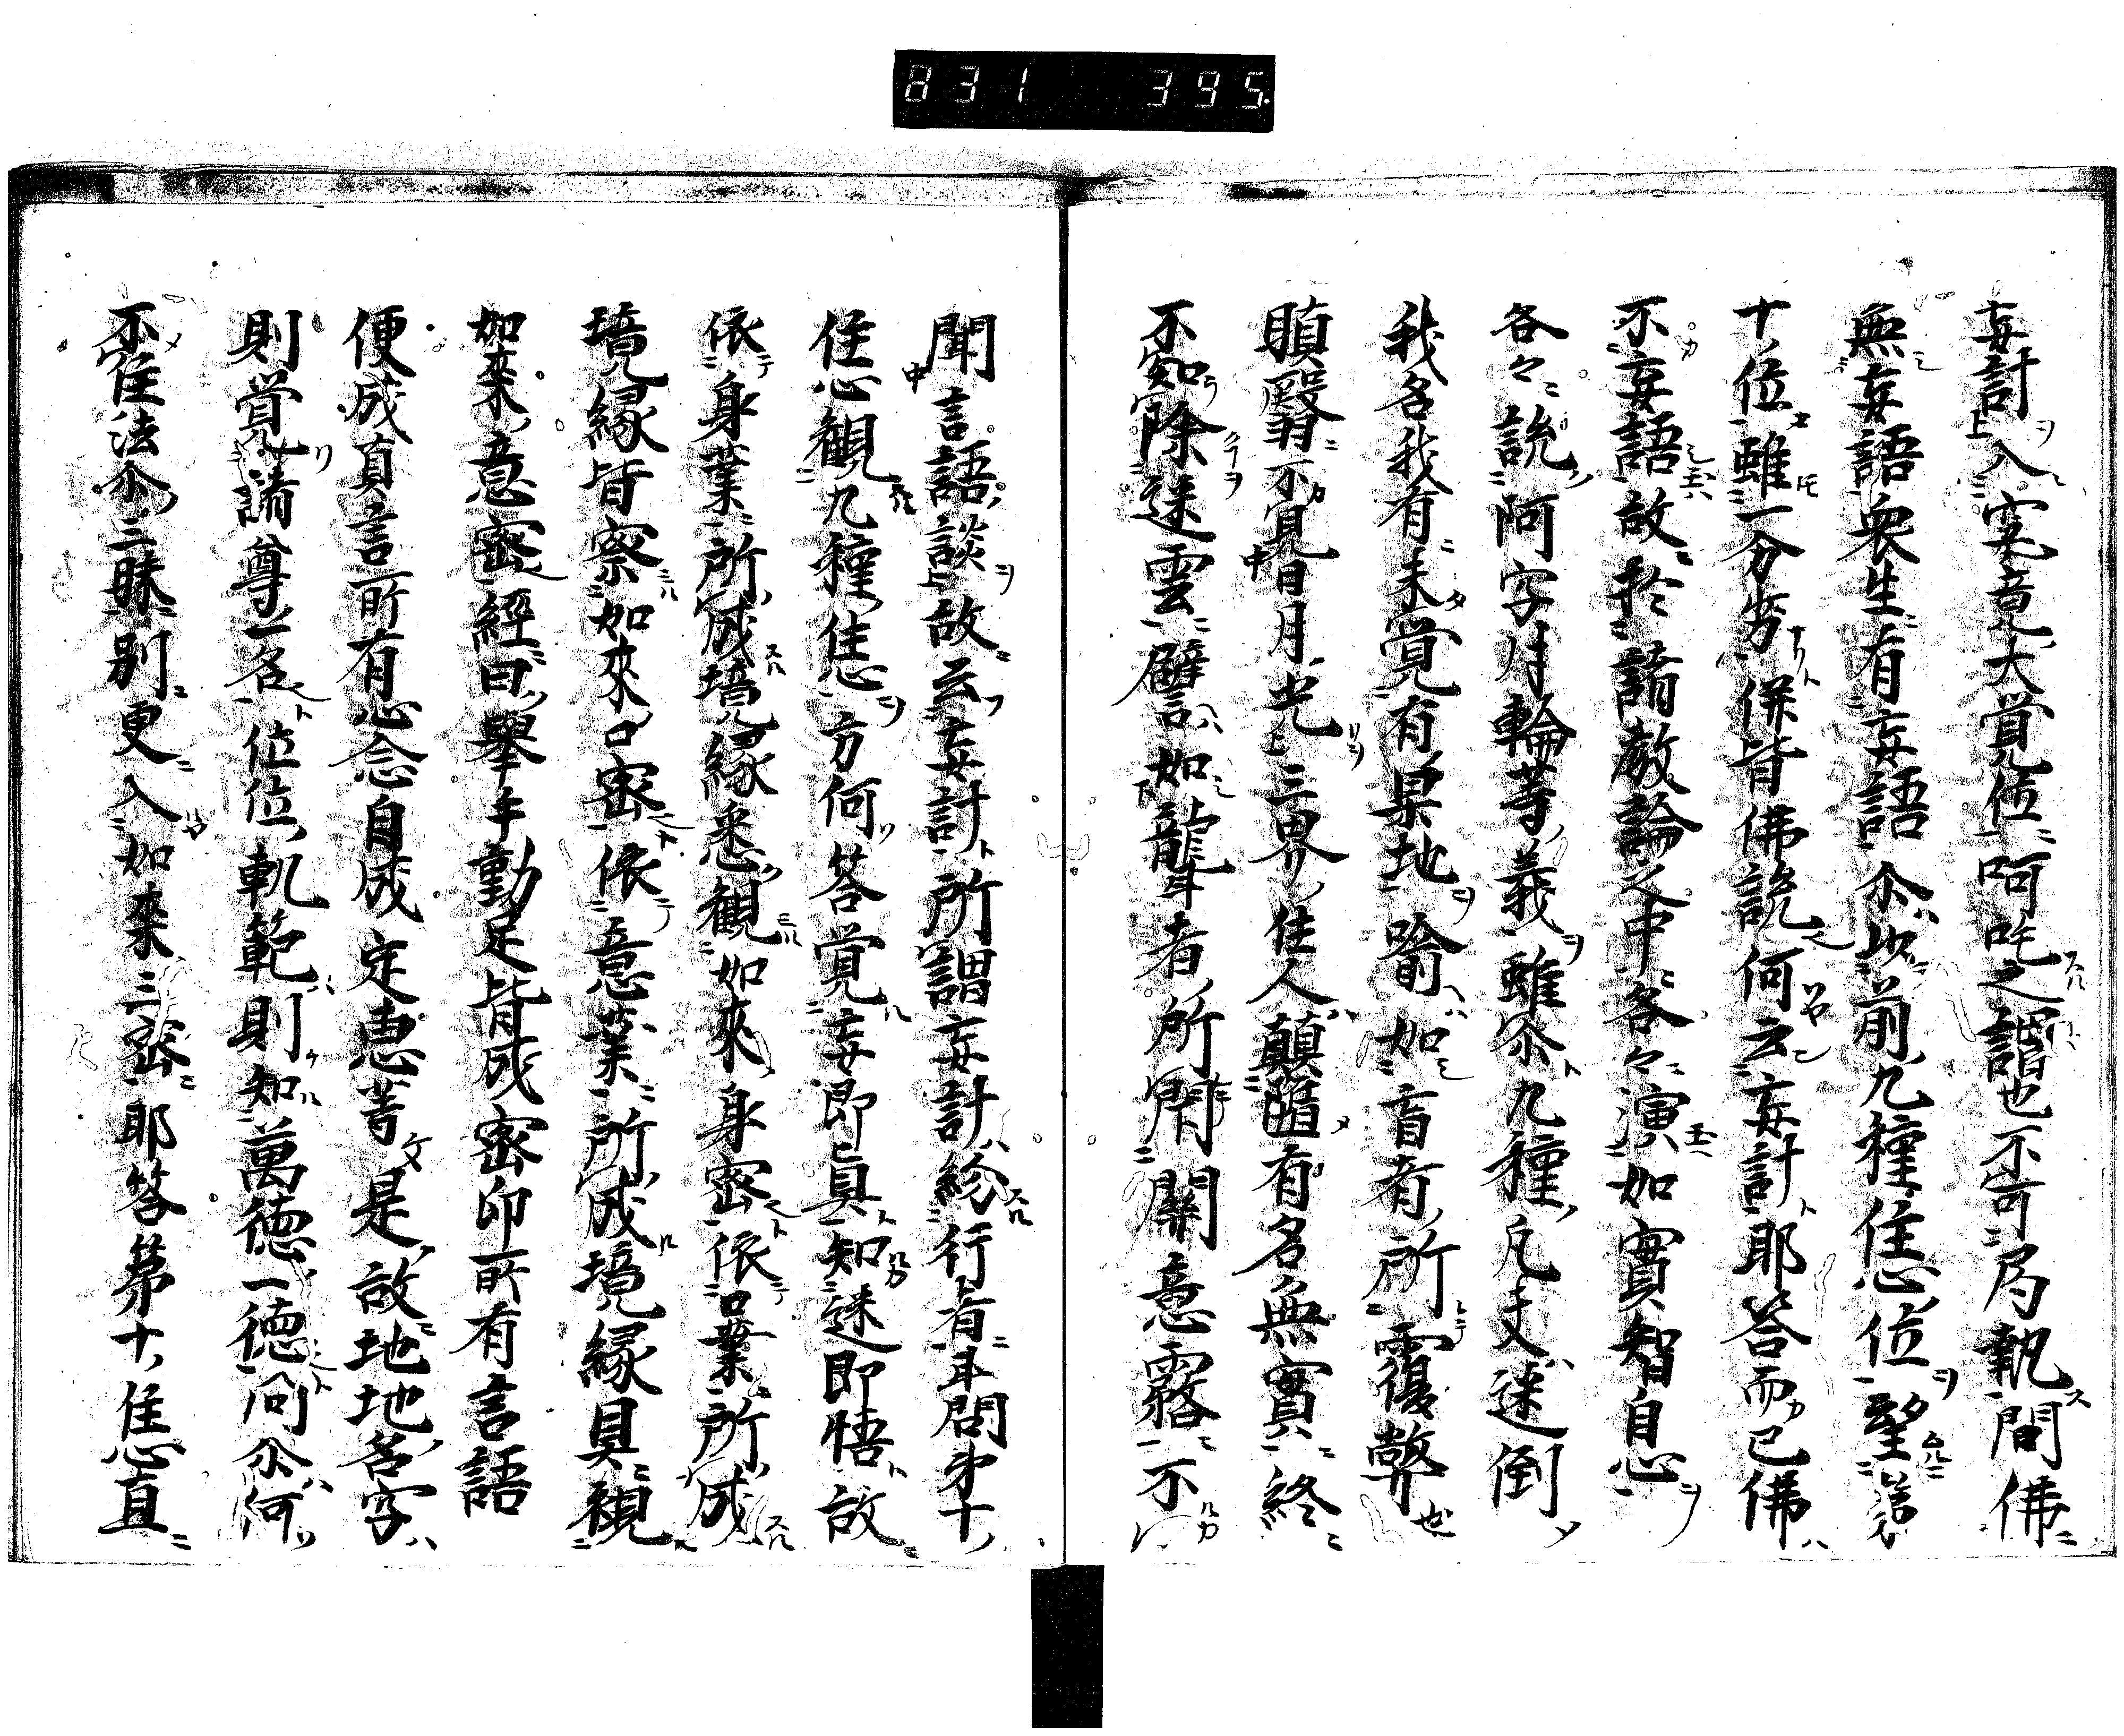 831 395
妄計入究竟大覚位呵吒之謂也不可為執問佛
無妄語衆生有妄語尒以前九種住心位望第
十位雖一分劣併皆佛説何云妄計耶答而已佛
不妄語故於諸教論之中各々演如實智自心
各々説阿字月輪等義雖尒九種凡夫迷倒
我名我有未覚有果地喩如盲者所覆弊
瞋翳不見日月光三界住人顛匿有名無實終
不知除迷雲譬如聾者所聞關意露不
聞言語談故云妄計所謂妄計紛行者耳問第十
住心観九種住心方何答覚妄即真知迷即悟故
依身業所成境縁悉観如来身密依口業所成
境縁皆察如来口密依意業所成境縁具観
如来意密經曰舉手動足皆成密印所有言語
便成真言所有心念自成定恵等是故地地名字
則覚諸尊一名位位軌範則知萬徳一徳問尒何
不住法尒三昧別更入如来三密耶答第十住心直